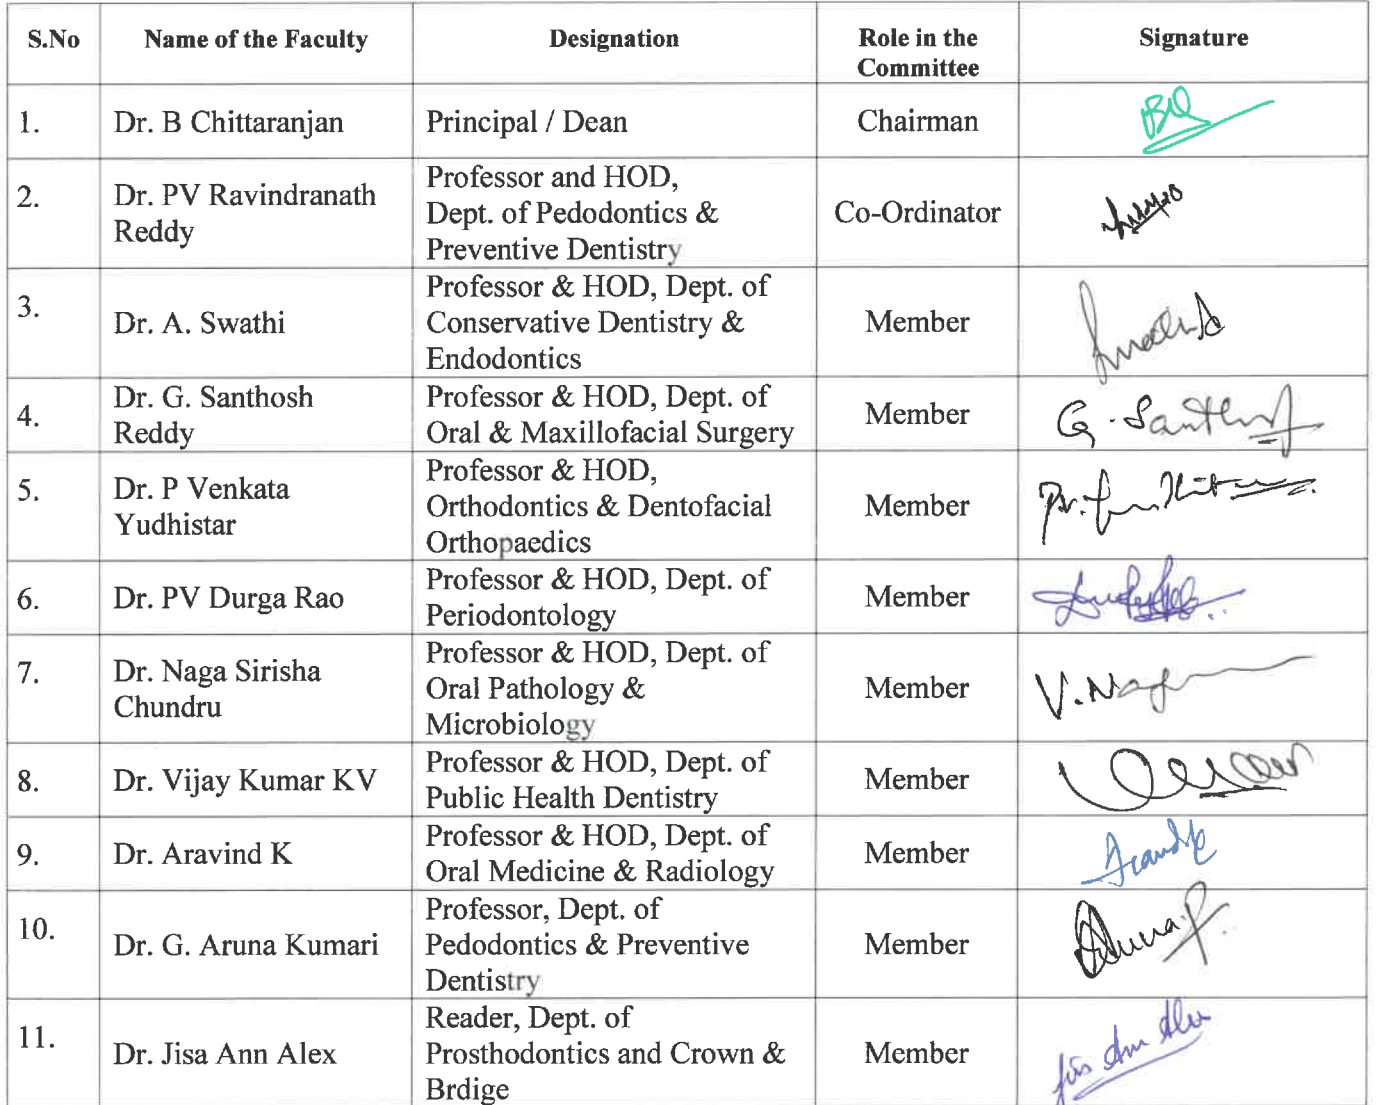 S.No Name of the Faculty Designation Role in the Committee Signature
1. Dr. B Chittaranjan Principal / Dean Chairman
2. Dr. PV Ravindranath Reddy Professor and HOD, Dept. of Pedodontics & Preventive Dentistry Co-Ordinator
3. Dr. A. Swathi Professor & HOD, Dept. of Conservative Dentistry & Endodontics Member
4. Dr. G. Santhosh Reddy Professor & HOD, Dept. of Oral & Maxillofacial Surgery Member G. Santhosh
5. Dr. P Venkata Yudhistar Professor & HOD, Orthodontics & Dentofacial Orthopaedics Member
6. Dr. PV Durga Rao Professor & HOD, Dept. of Periodontology Member
7. Dr. Naga Sirisha Chundru Professor & HOD, Dept. of Oral Pathology & Microbiology Member V. Nag
8. Dr. Vijay Kumar KV Professor & HOD, Dept. of Public Health Dentistry Member
9. Dr. Aravind K Professor & HOD, Dept. of Oral Medicine & Radiology Member
10. Dr. G. Aruna Kumari Professor, Dept. of Pedodontics & Preventive Dentistry Member
11. Dr. Jisa Ann Alex Reader, Dept. of Prosthodontics and Crown & Brdige Member Jis Ann Alex